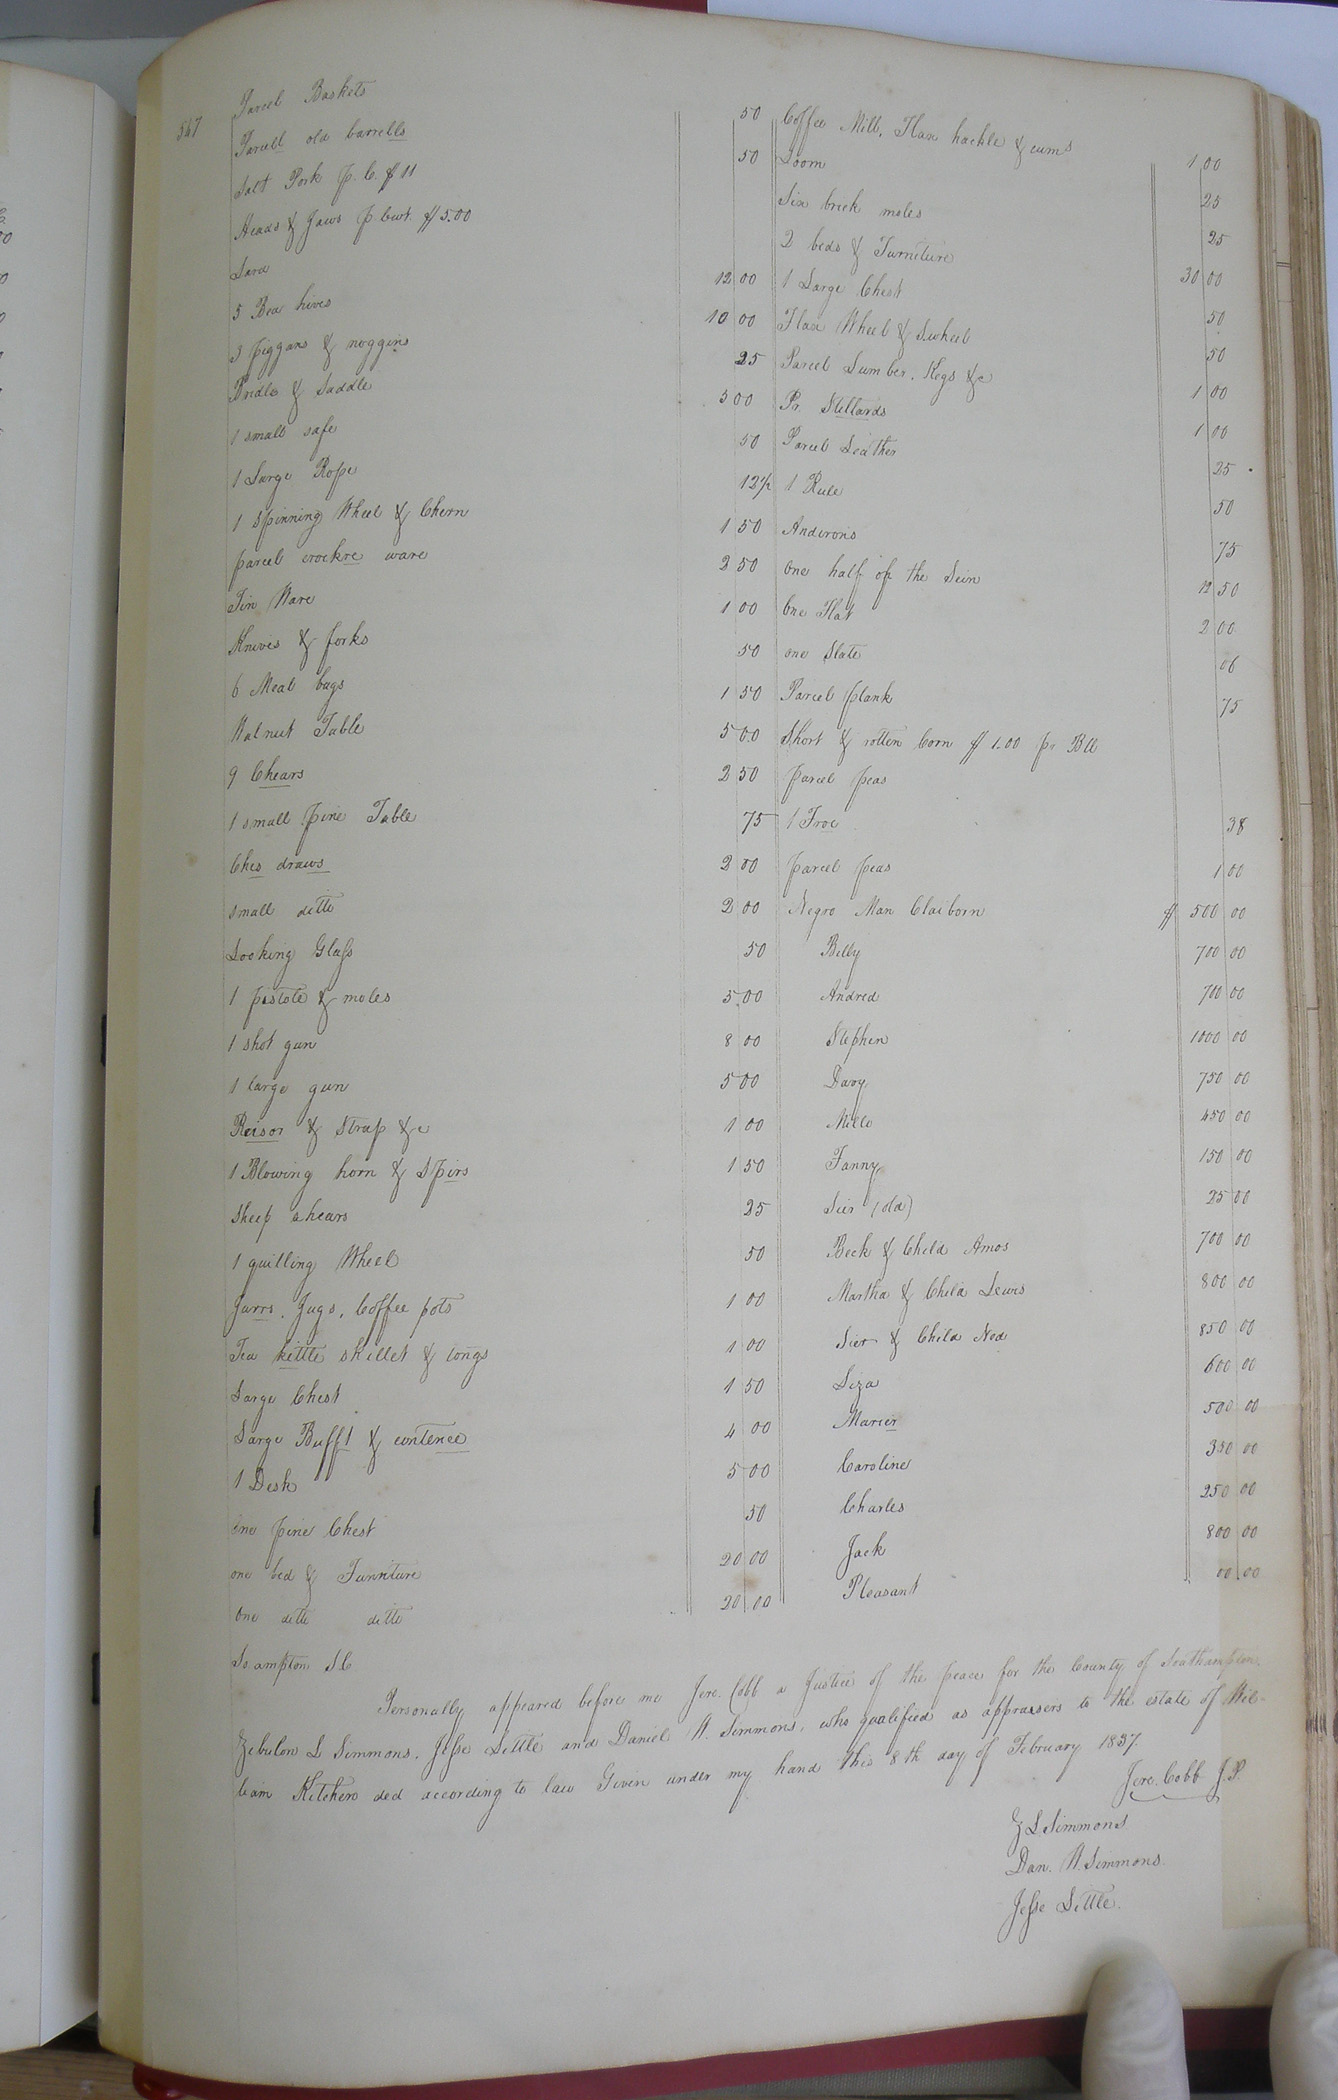 547
Parcel Baskets 50
Parcell old barrells 50
Salt Pork p. C. $11
Heads & Jaws p Cwt. $5.00
Lard
5 Bea hives 12 00
3 piggans & noggins 10 00
Bridle & Saddle 25
1 small safe 3 00
1 Large Rope 50
1 Spinning Wheel & Chern 12½
parcel crockre ware 1 50
Tin Ware 2 50
Knives & forks 1 00
6 Meal bags 50
Walnut Table 1 50
9 Chears 5 00
1 small pine Table 2 50
Ches draws 75
small ditto 2 00
Looking Glass 2 00
1 pistole & moles 50
1 shot gun 5 00
1 large gun 8 00
Reisor & Strap &c 5 00
1 Blowing horn & Spirs 1 00
Sheep shears 1 50
1 quilling Wheel 25
Jarrs, Jugs, Coffee pots 50
Tea kettle skillet & tongs 1 00
Large Chest 1 00
Large Buff t & contence 1 50
1 Desk 4 00
One pine Chest 5 00
one bed & Furniture 50
One ditto ditto 20 00
20 00
Coffee Mill, Flax hackle & cums 1 00
Loom 25
Six brick moles 25
2 beds & Furniture 30 00
1 Large Chest 50
Flax Wheel & Swheel 50
Parcel Lumber, Kegs &c 1 00
Pr. Stillards 1 00
Parcel Leather 25
1 Rule 50
Andirons 75
One half of the Sein 12 50
One Flat 2 00
one Slate 06
Parcel plank 75
Short & rotten Corn $1.00 pr Bll
parcel peas
1 Froe 38
parcel peas 1 00
Negro Man Claiborn $ 500 00
Billy 700 00
Andred 700 00
Stephen 1000 00
Davy 750 00
Mille 450 00
Fanny 150 00
Sier (old) 25 00
Beck & Child Amos 700 00
Martha & Child Lewis 800 00
Sier & Child Ned 850 00
Liza 600 00
Marier 500 00
Caroline 350 00
Charles 250 00
Jack 800 00
Pleasant 00 00
So ampton SC
Personally appeared before me Jere. Cobb a Justice of the peace for the County of Southampton
Zebulon L Simmons, Jesse Little and Daniel W. Simmons, who qualified as apprasers to the estate of Wil-
liam Kitchen ded according to law Given under my hand this 8th day of February 1837.
Jere. Cobb J. P.
Z L Simmons
Dan. W. Simmons
Jesse Little.